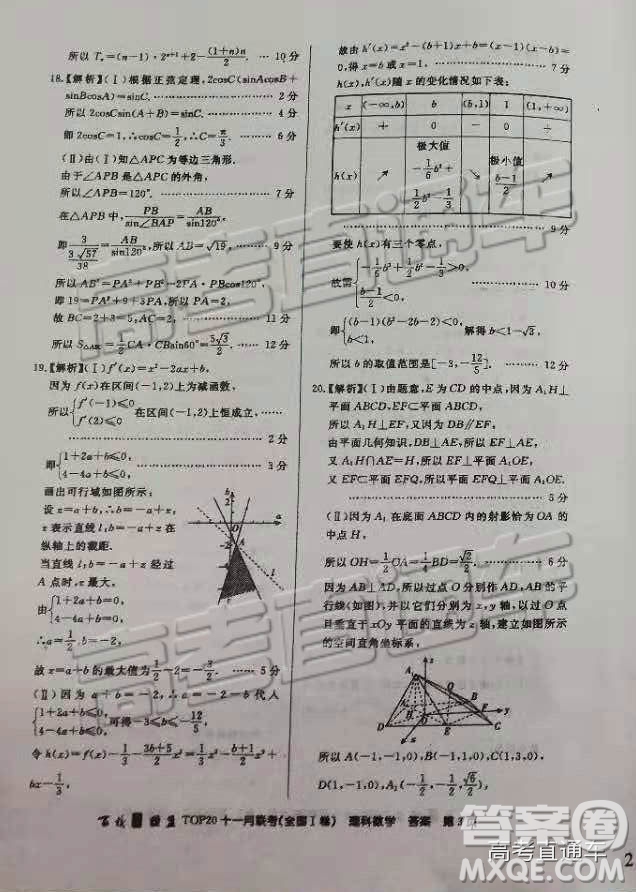 所以 Tₙ=(n-1)·2ⁿ⁺¹+2-(1+n)n/2. …… 10分
18.【解析】(Ⅰ)根据正弦定理,2cosC(sinAcosB+
sinBcosA)=sinC. …… 2分
所以 2cosCsin(A+B)=sinC. …… 4分
即 2cosC=1,∴cosC=1/2,∴C=π/3. …… 6分
(Ⅱ)由(Ⅰ)知△APC 为等边三角形.
由于∠APB 是△APC 的外角,
所以∠APB=120°. …… 7分
在△APB 中,PB/sin∠BAP=AB/sin120°,
即 3/(3√57/38)=AB/sin120°,所以 AB=√19, …… 9分
所以 AB²=PA²+PB²-2PA·PBcos120°,
即 19=PA²+9+3PA,所以 PA=2,
故 BC=2+3=5,AC=2, …… 11分
所以 S△ABC=1/2 CA·CBsin60°=5√3/2. …… 12分
19.【解析】(Ⅰ)f′(x)=x²-2ax+b,
因为 f(x)在区间(-1,2)上为减函数,
所以{f′(-1)≤0 f′(2)≤0 在区间(-1,2)上恒成立, ……
…… 2分
即{1+2a+b≤0, 4-4a+b≤0, …… 3分
画出可行域如图所示:
设 z=a+b,∴b=-a+z,
z 表示直线 l:b=-a+z 在
纵轴上的截距.
当直线 l:b=-a+z 经过
A 点时,z 最大,
由{1+2a+b=0, 4-4a+b=0,
∴a=1/2,b=-2,
故 z=a+b 的最大值为 1/2-2=-3/2. …… 5分
(Ⅱ)因为 a+b=-2 代入
{1+2a+b≤0, 4-4a+b≤0, 可得-3≤b≤-12/5,
令 h(x)=f(x)-1/3-(3b+5)/2 x²=1/3x³-(b+1)/2 x²+
bx-1/3,
b
2
O
a
A
l
故由 h′(x)=x²-(b+1)x+b=(x-1)(x-b)=
0,得 x=b 或 x=1. …… 7分
h(x),h′(x)随 x 的变化情况如下表:
x (-∞,b) b (b,1) 1 (1,+∞)
h′(x) + 0 - 0 +
h(x) ↗ 极大值 -1/6b³+1/2b²-1/3 ↘ 极小值 (b-1)/2 ↗
…… 9分
要使 h(x)有三个零点,
故需{-1/6b³+1/2b²-1/3>0, (b-1)/2<0, …… 10分
即{(b-1)(b²-2b-2)<0, b<1, 解得 b<1-√3,
所以 b 的取值范围是[-3,-12/5]. …… 12分
20.【解析】(Ⅰ)由题意,E 为 CD 的中点,因为 A₁H⊥
平面 ABCD,EF⊂平面 ABCD,
所以 A₁H⊥EF,又因为 DB∥EF,
由平面几何知识,DB⊥AE,所以 EF⊥AE,
又 A₁H∩AE=H,所以 EF⊥平面 A₁AE,
又 EF⊂平面 EFQ,所以平面 A₁AE⊥平面 EFQ.
…… 5分
(Ⅱ)因为 A₁ 在底面 ABCD 内的射影恰为 OA 的
中点 H,
所以 OH=1/2OA=1/4BD=√2/2. …… 6分
因为 AB⊥AD,所以过点 O 分别作 AD,AB 的平
行线(如图),并以它们分别为 x,y 轴,以过 O 点
且垂直于 xOy 平面的直线为 z 轴,建立如图所示
的空间直角坐标系,
z
A₁
Q
B
y
C
E
D
x
所以 A(-1,-1,0),B(-1,1,0),C(1,3,0),
D(1,-1,0),A₁(-1/2,-1/2,√6/2),
TOP20 十一月联考(全国Ⅰ卷) 理科数学 答案 第3页
高考直通车
高考直通车
高考直通车
答案圈
MXQE.COM
2